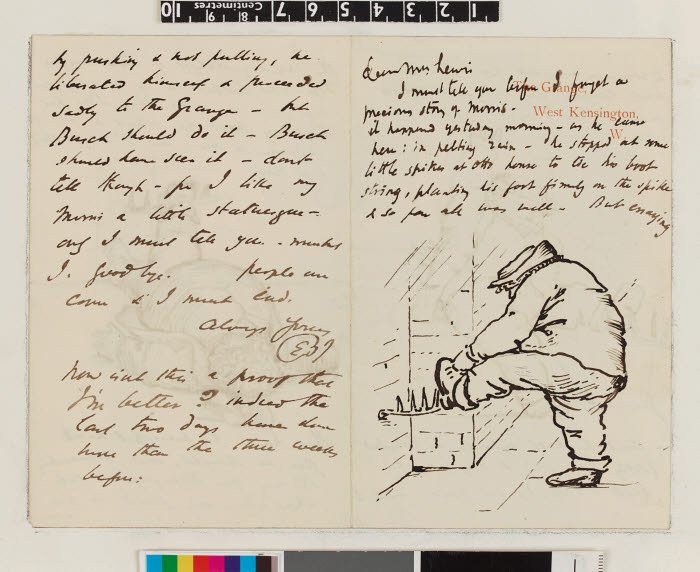 by pushing & not pulling, he
liberated himself & proceeded
sadly to the Grange – but
Busch should do it – Busch
should have seen it – dont
tell though – for I like my
Morris a little statuesque –
only I must tell you. – mustnt
I. goodbye. people are
come & I must end.
Always Yours
EBJ
Now isnt this a proof that
I'm better? indeed the
last two days have done
more than the three weeks
before:
The Grange,
West Kensington,
W.
Dear Mrs Lewis
I must tell you before I forget a
precious story of Morris –
it happened yesterday morning – as he came
here: in pelting rain – he stopped at some
little spikes at Otto house to tie his boot
string, planting his foot firmly on the spike
& so far all was well – But essaying
1 2 3 4 5 6 7 8 Centimetres 10